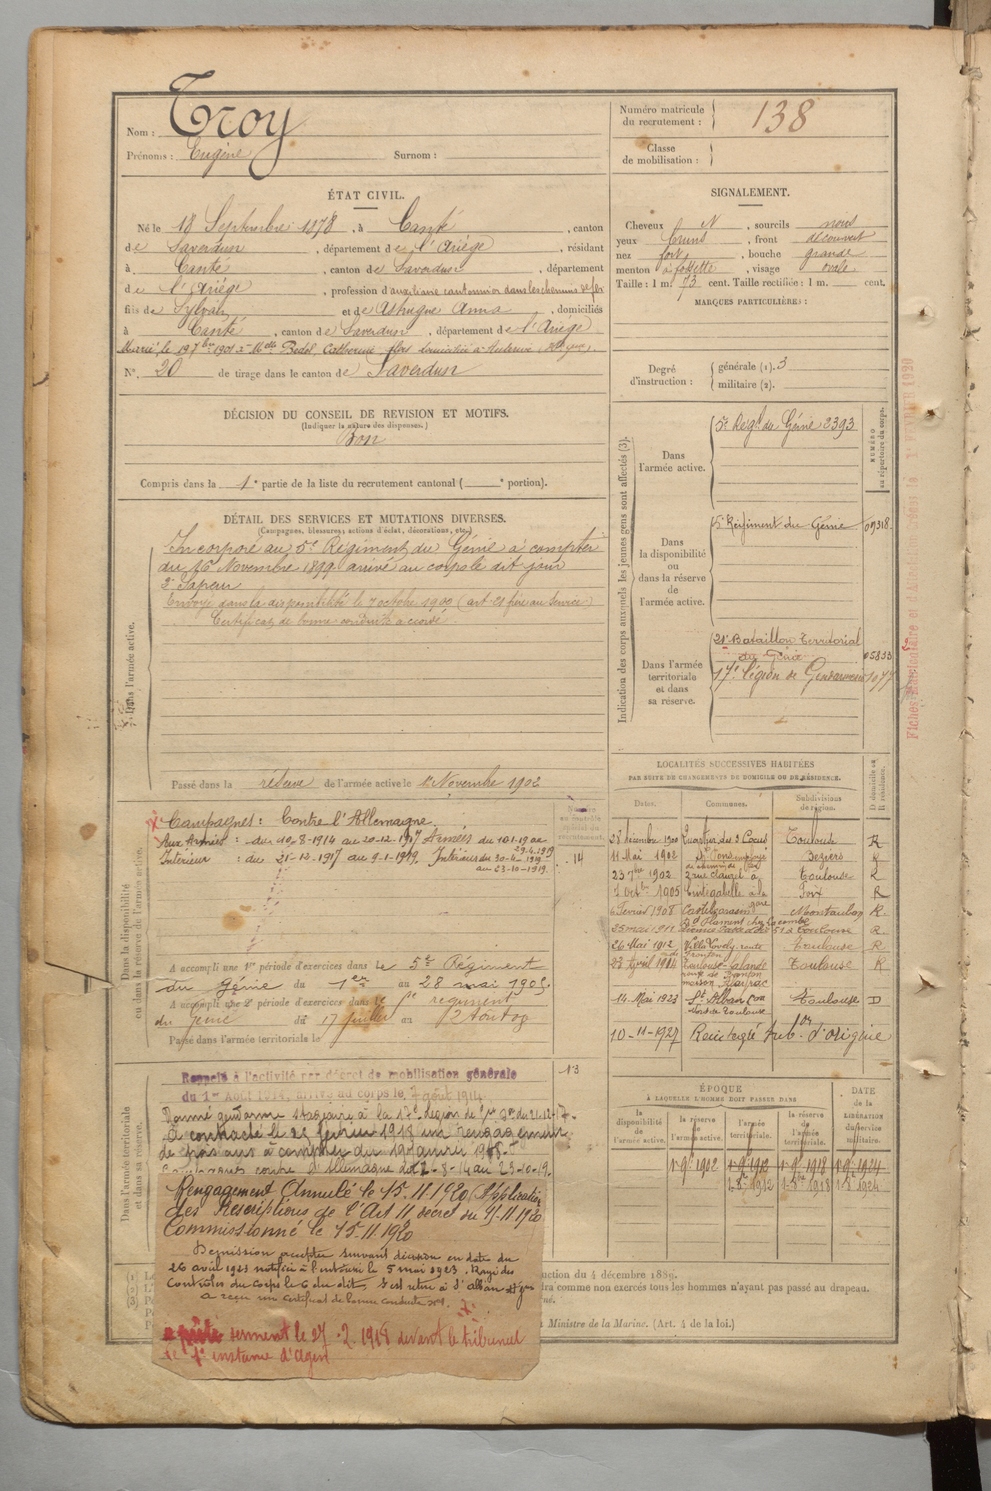 Nom : Troy
Prénoms : Eugène Surnom :
Numéro matricule du recrutement : 138
Classe de mobilisation :
ÉTAT CIVIL.
Né le 18 Septembre 1878, à Canté, canton
de Saverdun, département de l'Ariège, résidant
à Canté, canton de Saverdun, département
de l'Ariège, profession d'auxiliaire cantonnier dans les chemins de fer
fils de Sylvain et de Astrugue Anna, domiciliés
à Canté, canton de Saverdun, département de l'Ariège
Marié le 19 7bre 1901 à Melle Bedel Catherine domiciliée à Auterive
N° 20 de tirage dans le canton de Saverdun
DÉCISION DU CONSEIL DE REVISION ET MOTIFS.
(Indiquer la nature des dispenses.)
Bon
Compris dans la 1e partie de la liste du recrutement cantonal ( e portion).
DÉTAIL DES SERVICES ET MUTATIONS DIVERSES.
(Campagnes, blessures, actions d'éclat, décorations, etc.)
Dans l'armée active.
Incorporé au 5e Régiment du Génie à compter
du 16 Novembre 1899 arrivé au corps le dit jour
2e Sapeur
Envoyé dans la disponibilité le 7 octobre 1900
Certificat de bonne conduite accordé.
Passé dans la réserve de l'armée active le 1er Novembre 1902
Dans la disponibilité ou dans la réserve de l'armée active.
Campagnes : Contre l'Allemagne.
Aux Armées : du 10-8-1914 au 20-12-1917 Armées du 10-1-19 au 29-4-1919
Intérieur : du 21-12-1917 au 9-1-1919. Intérieur du 30-4-1919 au 23-10-1919.
14
A accompli une 1re période d'exercices dans le 5e Régiment
du Génie du 1er au 28 mai 1905
A accompli une 2e période d'exercices dans le régiment
du Génie du 17 juillet au 2 Août 09
Passé dans l'armée territoriale le
Dans l'armée territoriale et dans sa réserve.
13
Rappelé à l'activité par décret de mobilisation générale
du 1er Août 1914, arrivé au corps le 7 août 1914.
Nommé gendarme stagiaire à la 17e légion de
A contracté le 25 février 1918 un rengagement
de trois ans à compter du 19 janvier 1918.
Campagnes contre l'Allemagne du 2-8-14 au 23-10-19.
Rengagement Annulé le 15.11.1920 Application
des Prescriptions de l'Art 11 décret du 9/11.1920
Commissionné le 15-11.1920
Démission acceptée suivant décision en date du
26 avril 1923 notifiée à l'intéressé le 5 mai 1923. Rayé des
Contrôles du corps le 6 du dit. S'est retiré à St Alban
A reçu un certificat de bonne conduite
a prêté serment le 27 .2.1918 devant le tribunal
de 1e instance d'Agen
SIGNALEMENT.
Cheveux N, sourcils noirs
yeux bruns, front découvert
nez fort, bouche grande
menton à fossette, visage ovale
Taille : 1 m. 73 cent. Taille rectifiée : 1 m. cent.
MARQUES PARTICULIÈRES :
Degré d'instruction : générale (1). 3
militaire (2).
Indication des corps auxquels les jeunes gens sont affectés (3).
NUMÉRO au répertoire du corps.
Dans l'armée active. 5e Régt du Génie 2393
Dans la disponibilité ou dans la réserve de l'armée active. 5e Régiment du Génie 09318
Dans l'armée territoriale et dans sa réserve. 21e Bataillon Territorial du Génie 05853
17e Légion de Gendarmerie 1077
LOCALITÉS SUCCESSIVES HABITÉES
PAR SUITE DE CHANGEMENTS DE DOMICILE OU DE RÉSIDENCE.
Dates. Communes. Subdivisions de région. D domicile ou R résidence.
28 décembre 1900 Toulouse R
11 Mai 1902 St Pons employé chemin de fer Béziers R
23 7bre 1902 2 rue Clauzel à Toulouse R
1 octbre 1905 Cintegabelle à la gare Foix R
4 Février 1908 Castelsarrasin Montauban R.
25 mai 1911 Toulouse R.
26 Mai 1912 Toulouse R
23 Avril 1914 Toulouse-Lalande Toulouse R
14 Mai 1923 St Alban Con Nord de Toulouse Toulouse D
10-11-1927 Réintégré sub.on d'origine
ÉPOQUE
A LAQUELLE L'HOMME DOIT PASSER DANS
la disponibilité de l'armée active. la réserve de l'armée active. l'armée territoriale. la réserve de l'armée territoriale.
DATE de la LIBÉRATION du service militaire.
1er 9bre 1902 1er 9bre 1912 1er 9bre 1918 1er 9bre 1924
1-8bre 1912 1-8bre 1918 1-8 1924
uction du 4 décembre 1889.
dra comme non exercés tous les hommes n'ayant pas passé au drapeau.
Ministre de la Marine. (Art. 4 de la loi.)